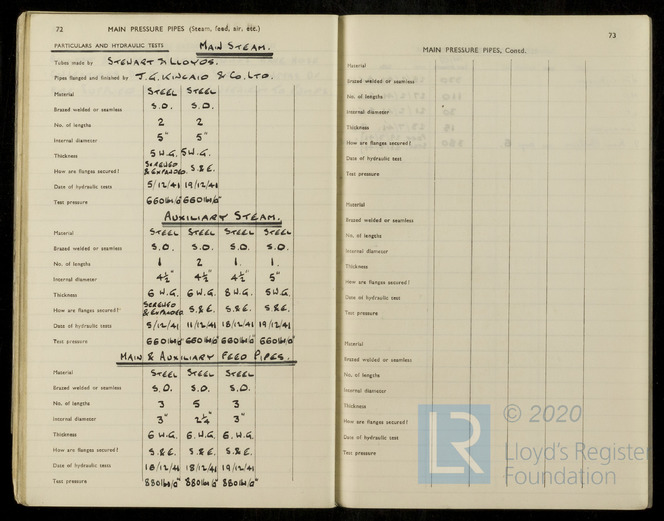 72 MAIN PRESSURE PIPES (Steam, feed, air, etc.)
PARTICULARS AND HYDRAULIC TESTS MAIN STEAM.
Tubes made by STEWART & LLOYDS.
Pipes flanged and finished by J.G. KINCAID & CO. LTD.
Material STEEL STEEL
Brazed welded or seamless S.D. S.D.
No. of lengths 2 2
Internal diameter 5" 5"
Thickness 5 W.G. 5 W.G.
How are flanges secured? SCREWED & EXPANDED. S.&E.
Date of hydraulic tests 5/12/41 19/12/41
Test pressure 660lbs/□" 660lbs/□"
AUXILIARY STEAM.
Material STEEL STEEL STEEL STEEL
Brazed welded or seamless S.D. S.D. S.D. S.D.
No. of lengths 1 2 1. 1.
Internal diameter 4½" 4½" 4½" 5"
Thickness 6 W.G. 6 W.G. 8 W.G. 5 W.G.
How are flanges secured? SCREWED & EXPANDED S.&E. S.&E. S.&E.
Date of hydraulic tests 5/12/41 11/12/41 18/12/41 19/12/41
Test pressure 660lbs/□" 660lbs/□" 660lbs/□" 660lbs/□"
MAIN & AUXILIARY FEED PIPES.
Material STEEL STEEL STEEL
Brazed welded or seamless S.D. S.D. S.D.
No. of lengths 3 5 3
Internal diameter 3" 2¼" 3"
Thickness 6 W.G. 6. W.G. 6. W.G.
How are flanges secured? S.&E. S.&E. S.&E.
Date of hydraulic tests 18/12/41 18/12/41 19/12/41
Test pressure 880lbs/□" 880lbs/□" 880lbs/□"
73
MAIN PRESSURE PIPES, Contd.
Material
Brazed welded or seamless
No. of lengths
Internal diameter
Thickness
How are flanges secured?
Date of hydraulic tests
Test pressure
Material
Brazed welded or seamless
No. of lengths
Internal diameter
Thickness
How are flanges secured?
Date of hydraulic tests
Test pressure
Material
Brazed welded or seamless
No. of lengths
Internal diameter
Thickness
How are flanges secured?
Date of hydraulic tests
Test pressure
LR
© 2020
Lloyd's Register
Foundation